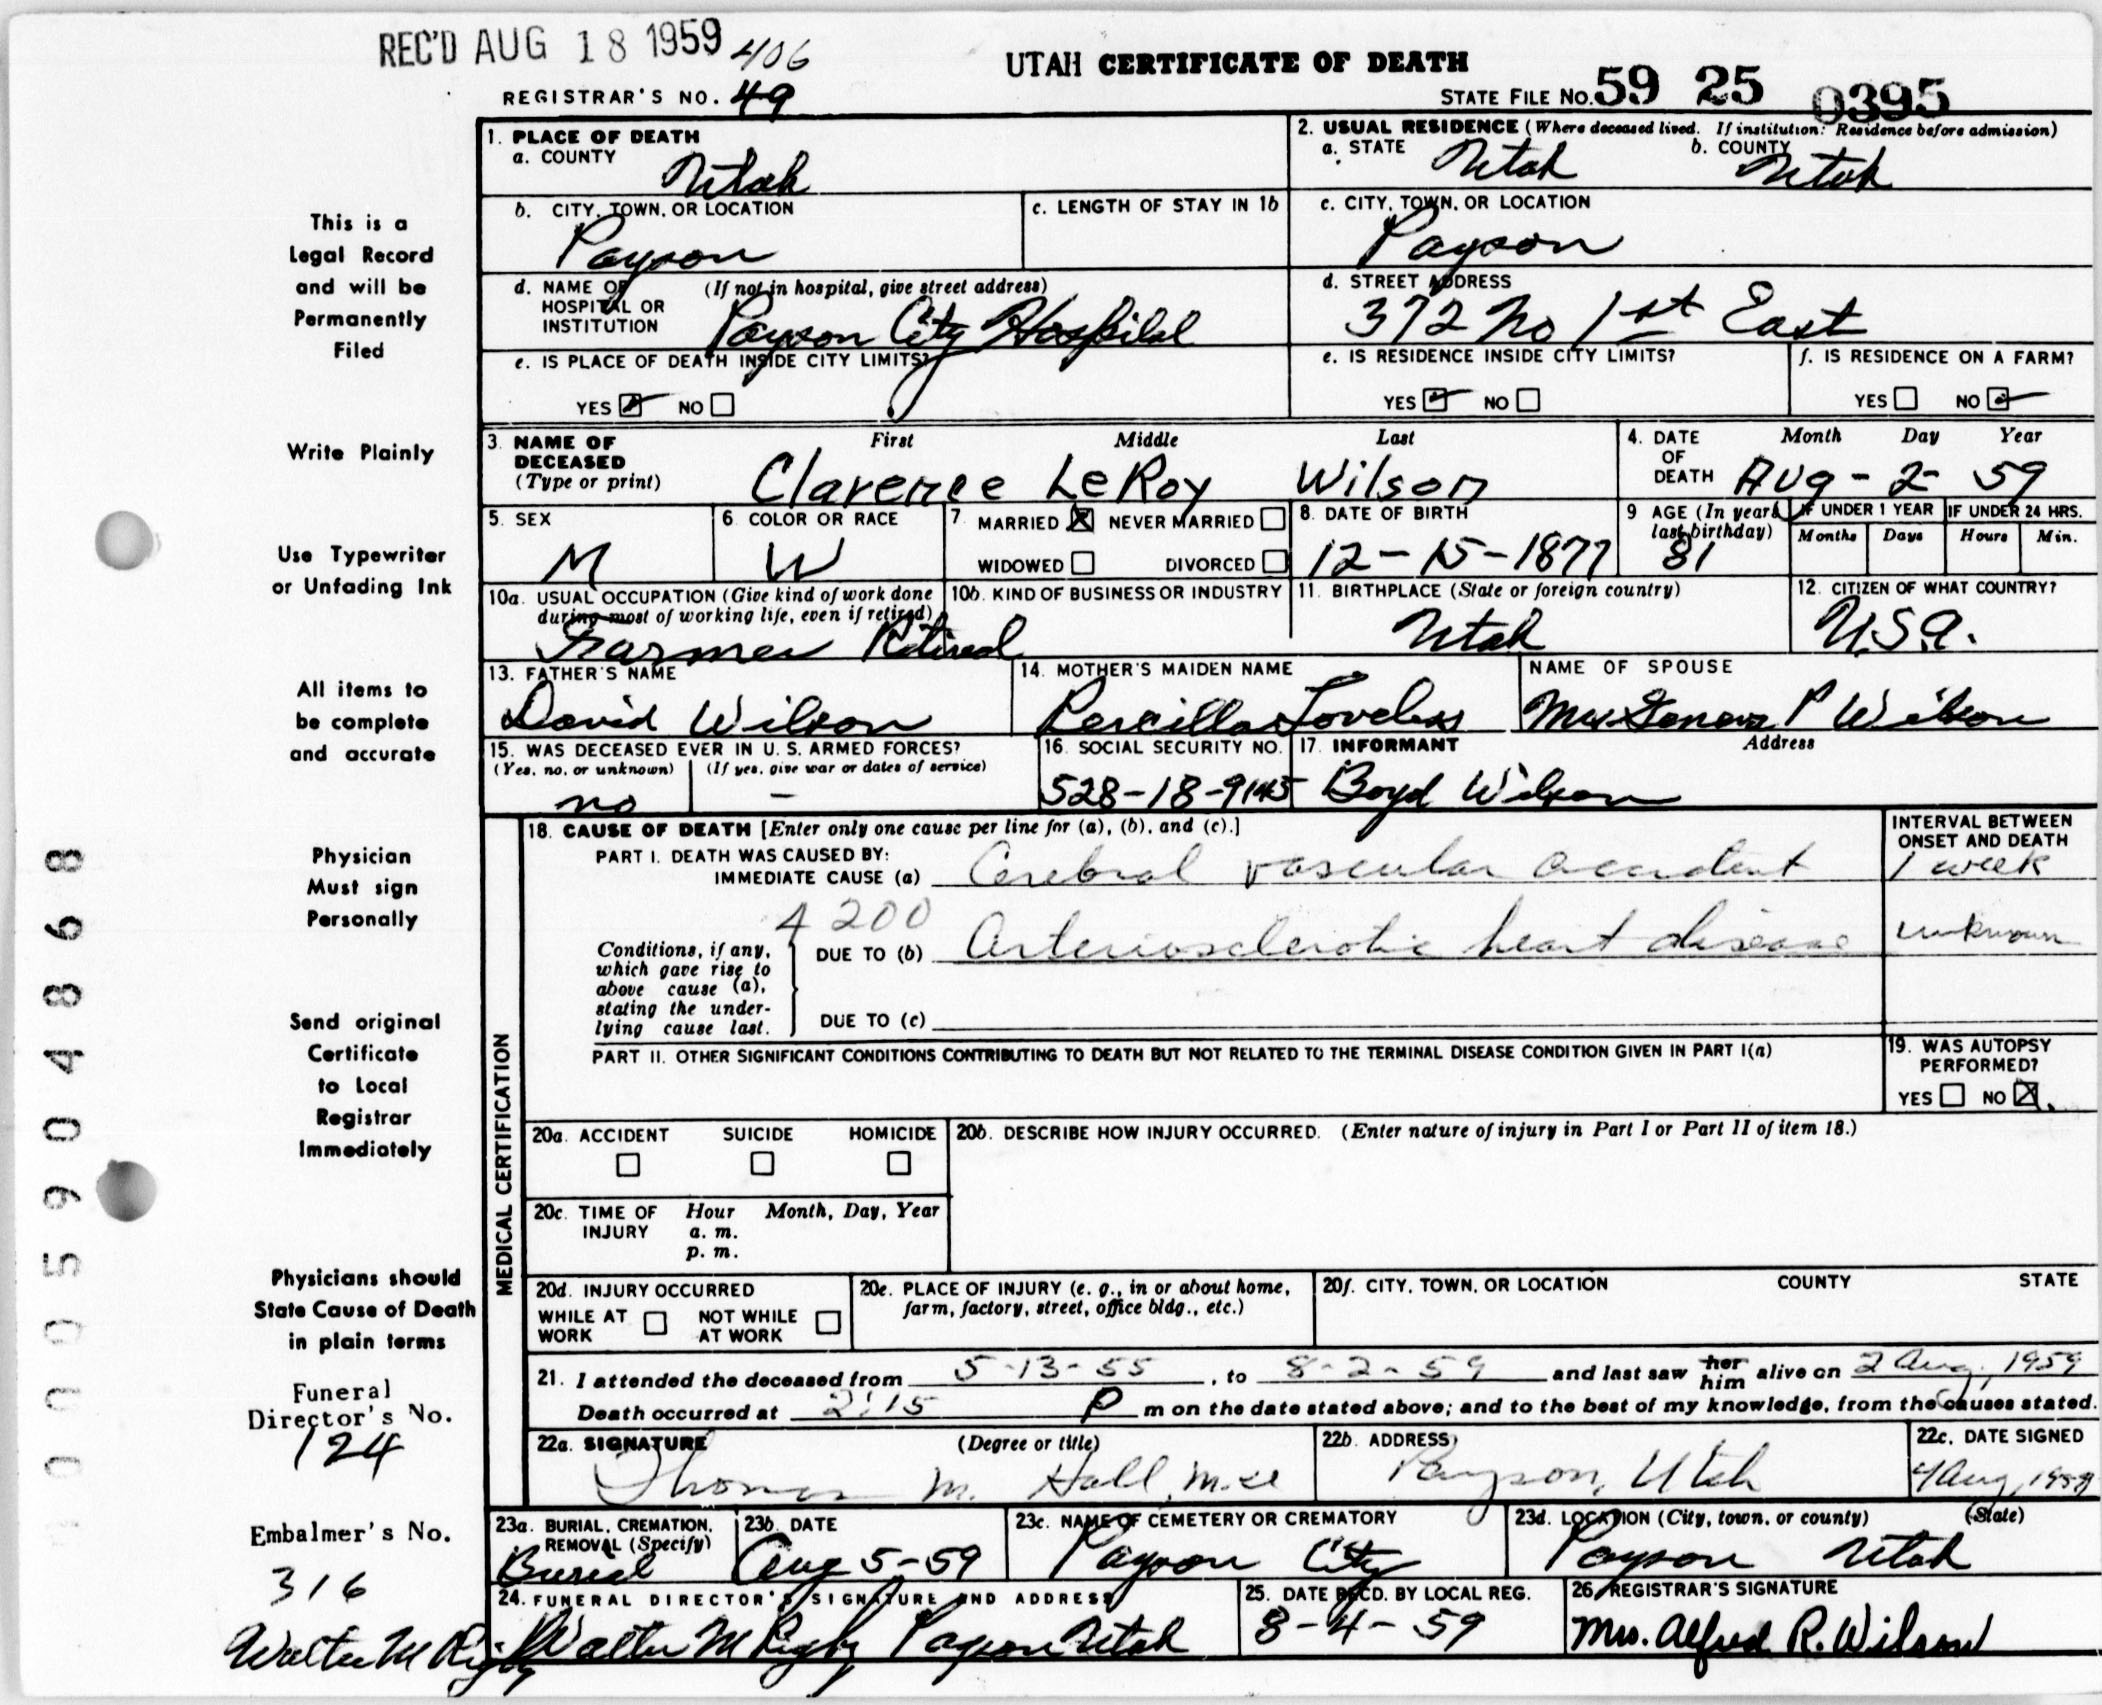 REC'D AUG 18 1959 406
UTAH CERTIFICATE OF DEATH
REGISTRAR'S NO. 49
STATE FILE NO. 59 25 0395
1. PLACE OF DEATH
a. COUNTY
Utah
2. USUAL RESIDENCE (Where deceased lived. If institution: Residence before admission)
a. STATE Utah b. COUNTY Utah
b. CITY, TOWN, OR LOCATION
Payson
c. LENGTH OF STAY IN 1b
c. CITY, TOWN, OR LOCATION
Payson
d. NAME OF HOSPITAL OR INSTITUTION (If not in hospital, give street address)
Payson City Hospital
d. STREET ADDRESS
372 No 1st East
e. IS PLACE OF DEATH INSIDE CITY LIMITS?
YES NO
e. IS RESIDENCE INSIDE CITY LIMITS?
YES NO
f. IS RESIDENCE ON A FARM?
YES NO
3. NAME OF DECEASED (Type or print)
First Middle Last
Clarence LeRoy Wilson
4. DATE OF DEATH
Month Day Year
Aug - 2 - 59
5. SEX
M
6. COLOR OR RACE
W
7. MARRIED NEVER MARRIED
WIDOWED DIVORCED
8. DATE OF BIRTH
12-15-1877
9 AGE (In years last birthday)
81
IF UNDER 1 YEAR
Months Days
IF UNDER 24 HRS.
Hours Min.
10a. USUAL OCCUPATION (Give kind of work done during most of working life, even if retired)
Farmer Retired
10b. KIND OF BUSINESS OR INDUSTRY
11. BIRTHPLACE (State or foreign country)
Utah
12. CITIZEN OF WHAT COUNTRY?
U.S.A.
13. FATHER'S NAME
David Wilson
14. MOTHER'S MAIDEN NAME
Percilla Loveless
NAME OF SPOUSE
Mrs Geneva P Wilson
15. WAS DECEASED EVER IN U. S. ARMED FORCES?
(Yes, no, or unknown) (If yes, give war or dates of service)
no -
16. SOCIAL SECURITY NO.
528-18-9145
17. INFORMANT Address
Boyd Wilson
MEDICAL CERTIFICATION
18. CAUSE OF DEATH [Enter only one cause per line for (a), (b), and (c).]
INTERVAL BETWEEN ONSET AND DEATH
PART I. DEATH WAS CAUSED BY:
IMMEDIATE CAUSE (a) Cerebral vascular accident 1 week
4200
Conditions, if any, which gave rise to above cause (a), stating the underlying cause last.
DUE TO (b) Arteriosclerotic heart disease unknown
DUE TO (c)
PART II. OTHER SIGNIFICANT CONDITIONS CONTRIBUTING TO DEATH BUT NOT RELATED TO THE TERMINAL DISEASE CONDITION GIVEN IN PART I(a)
19. WAS AUTOPSY PERFORMED?
YES NO
20a. ACCIDENT SUICIDE HOMICIDE
20b. DESCRIBE HOW INJURY OCCURRED. (Enter nature of injury in Part I or Part II of item 18.)
20c. TIME OF INJURY Hour Month, Day, Year
a. m.
p. m.
20d. INJURY OCCURRED
WHILE AT WORK NOT WHILE AT WORK
20e. PLACE OF INJURY (e. g., in or about home, farm, factory, street, office bldg., etc.)
20f. CITY, TOWN, OR LOCATION COUNTY STATE
21. I attended the deceased from 5-13-55, to 8-2-59 and last saw her him alive on 2 Aug, 1959
Death occurred at 2:15 P m on the date stated above; and to the best of my knowledge, from the causes stated.
22a. SIGNATURE (Degree or title)
Thomas M. Hall, M.D.
22b. ADDRESS
Payson, Utah
22c. DATE SIGNED
4 Aug, 1959
23a. BURIAL, CREMATION, REMOVAL (Specify)
Burial
23b. DATE
Aug 5-59
23c. NAME OF CEMETERY OR CREMATORY
Payson City
23d. LOCATION (City, town, or county) (State)
Payson Utah
24. FUNERAL DIRECTOR'S SIGNATURE AND ADDRESS
Walter M Rigby Payson Utah
25. DATE RECD. BY LOCAL REG.
8-4-59
26. REGISTRAR'S SIGNATURE
Mrs. Alfred R. Wilson
This is a
Legal Record
and will be
Permanently
Filed
Write Plainly
Use Typewriter
or Unfading Ink
All items to
be complete
and accurate
Physician
Must sign
Personally
Send original
Certificate
to Local
Registrar
Immediately
Physicians should
State Cause of Death
in plain terms
Funeral
Director's No.
124
Embalmer's No.
316
Walter M Rigby
0005904868